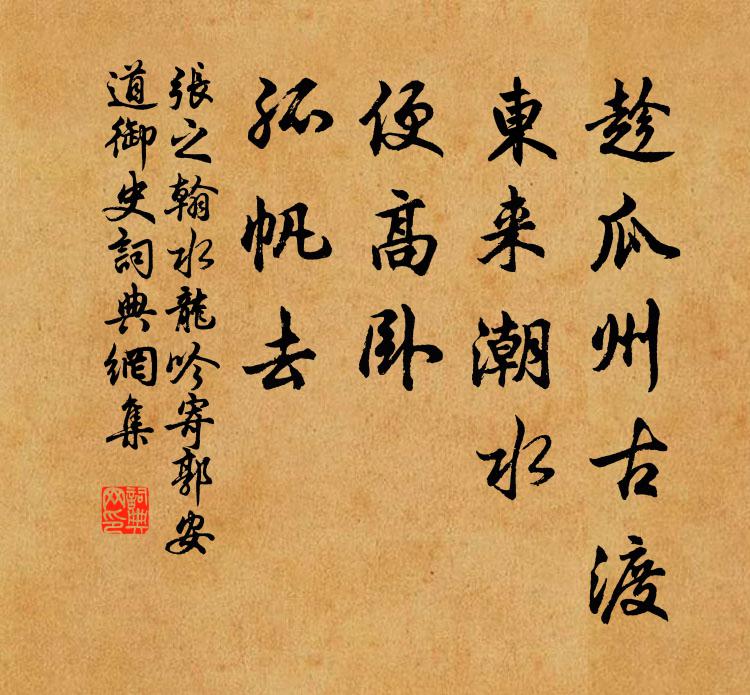 趁瓜州古渡
東来潮水
便高卧
孤帆去
張之翰水龍吟寄郭安
道御史詞典網集
詞典
网印